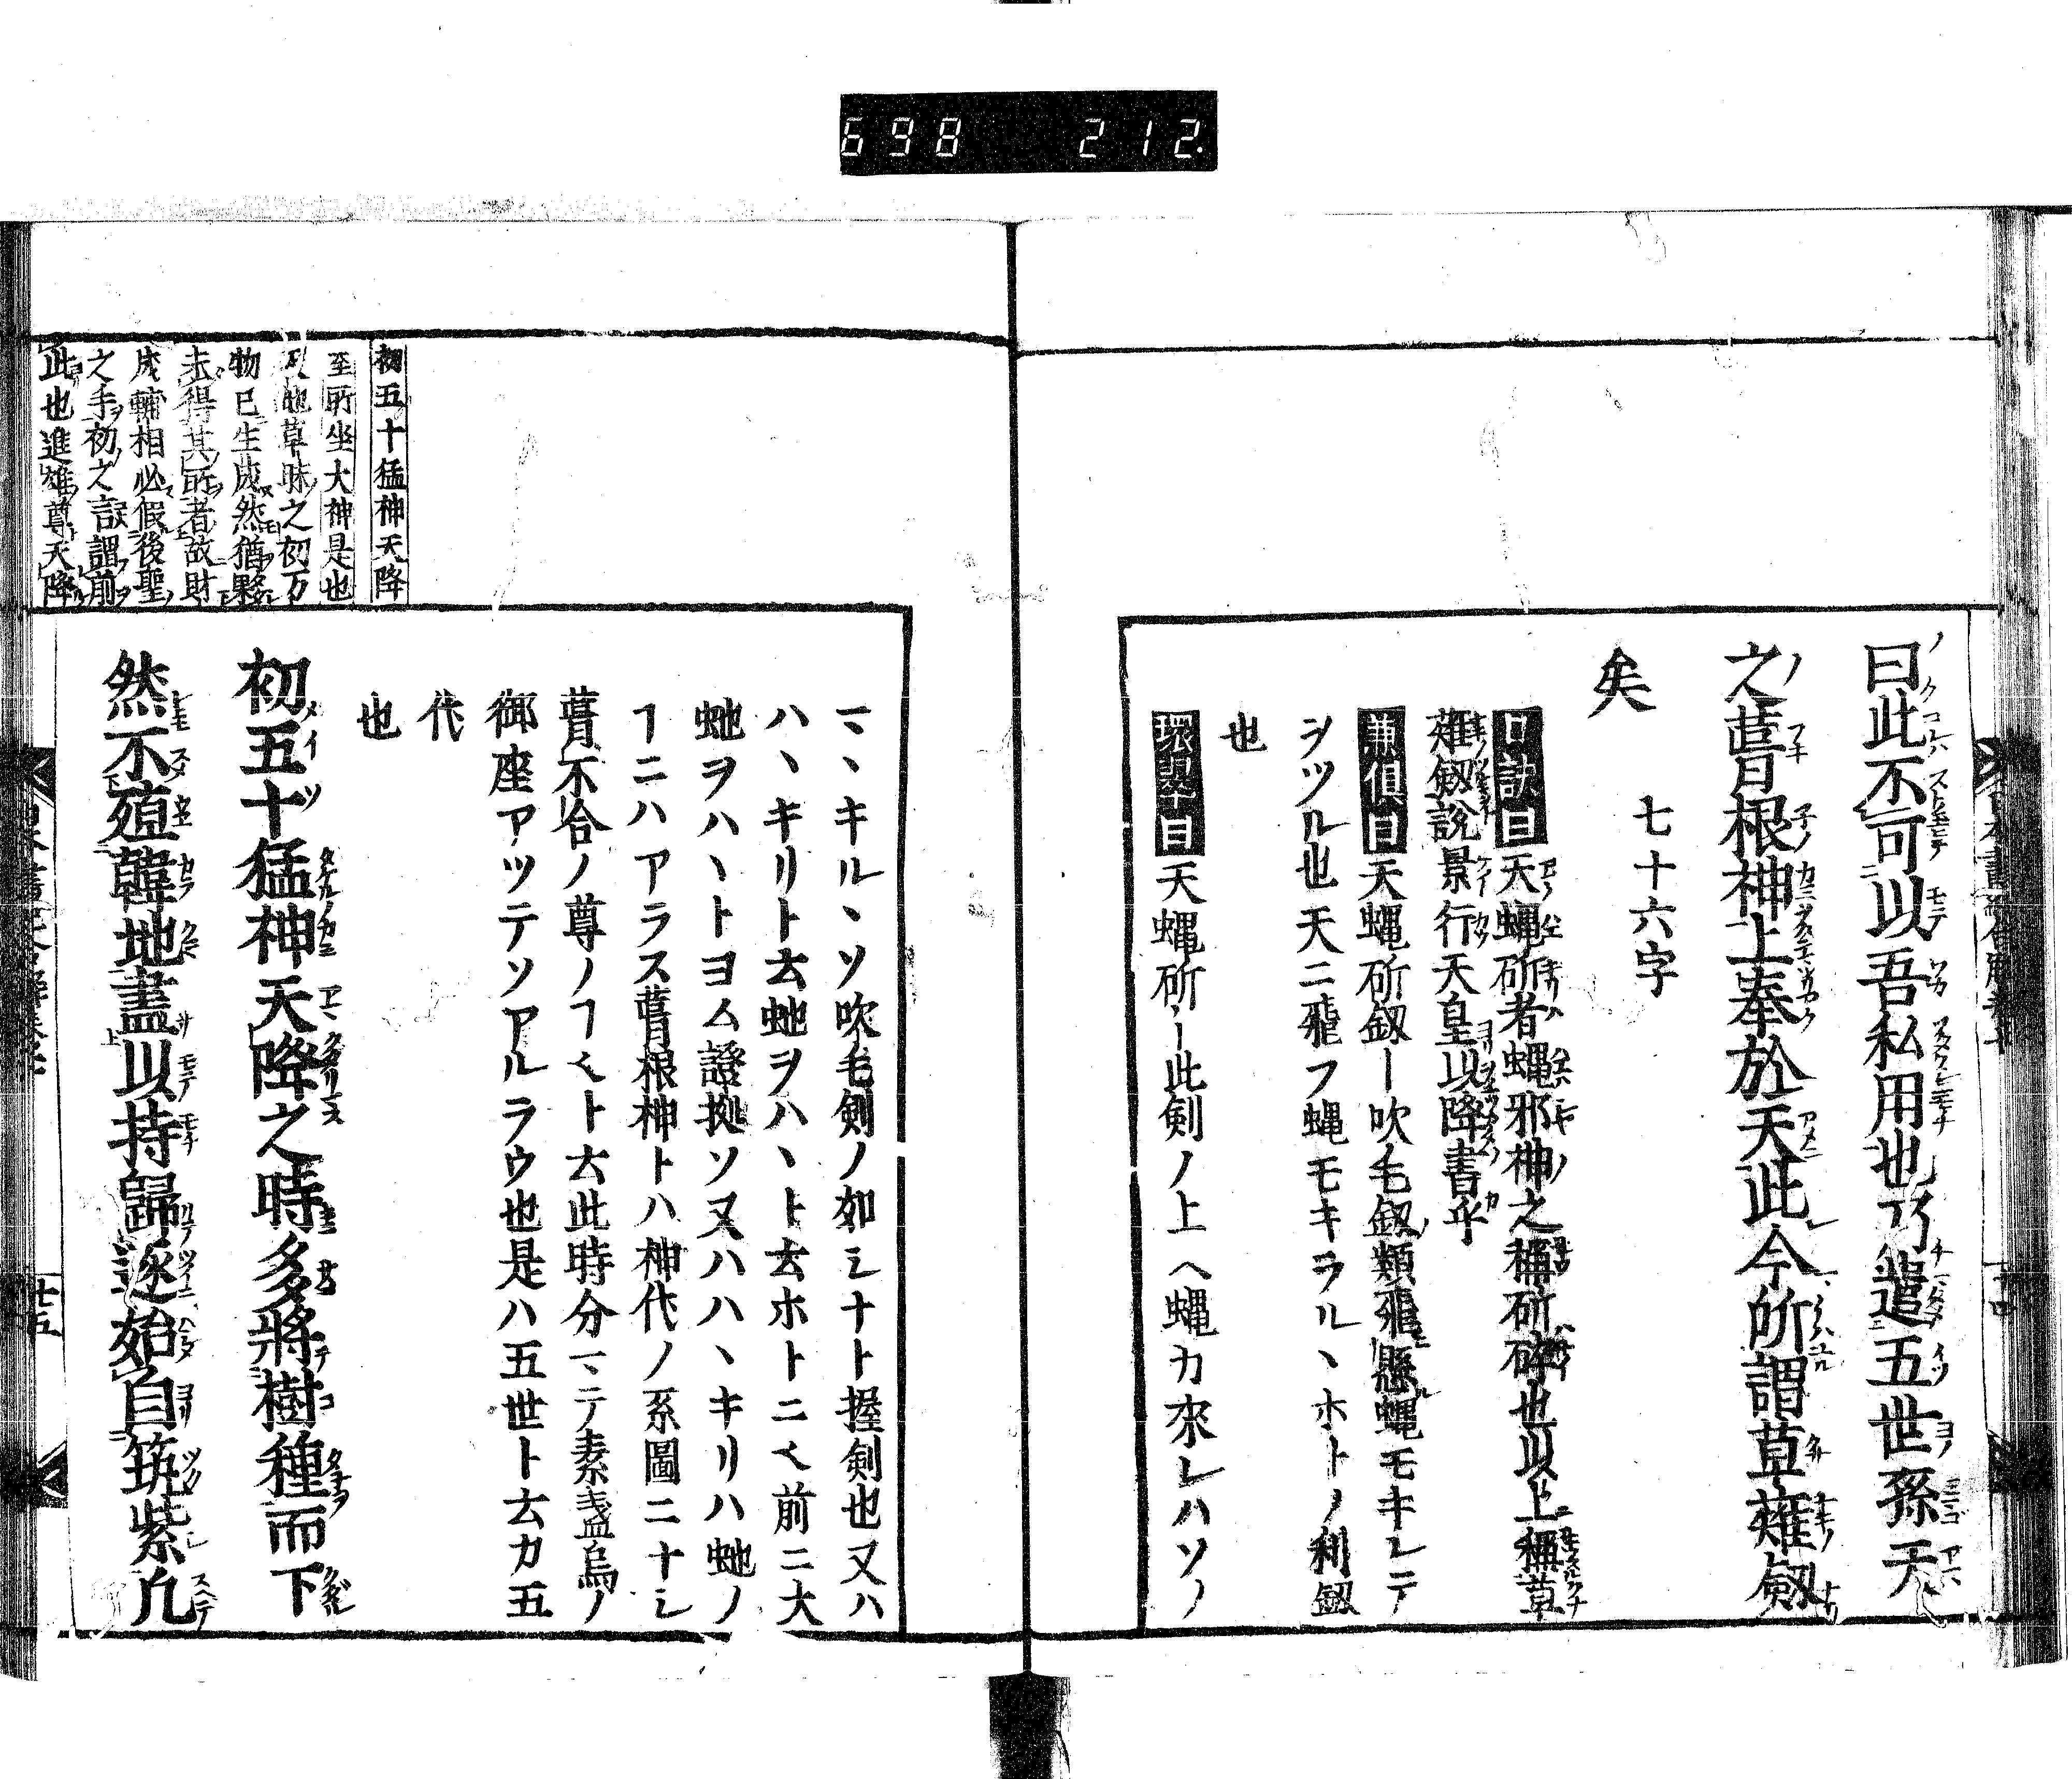 698 212.
曰此不可以吾私用也乃遣五世孫天
之葺根神上奉於天此今所謂草薙劔
矣
七十六字
口訣曰天蠅斫者蠅邪神之稱斫碎也以上稱草
薙劔說景行天皇以降書乎
兼俱曰天蠅斫劔ー吹毛劔類飛懸蠅モキレテ
ヲツル也天ニ飛フ蠅モキラルヽホトノ利劔
也
環翠曰天蠅斫ー此剣ノ上ヘ蠅カ來レハソノ
マヽキルヽソ吹毛剣ノ如シナト握剣也又ハ
ハヽキリト云虵ヲハヽト云ホトニヘ前ニ大
虵ヲハヽトヨム證拠ソ又ハハヽキリハ虵ノ
ヿニハアラス葺根神トハ神代ノ系圖ニナシ
葺不合ノ尊ノヿヘト云此時分マテ素盞烏ノ
御座アツテソアルラウ也是ハ五世ト云カ五
代
也
初五十猛神天降之時多將樹種而下
然不殖韓地盡以持歸遂始自筑紫凡
初五十猛神天降
至所坐大神是也
天地草昧之初万
物已生成然猶夥
未得其所者故財
成輔相必假後聖
之手初之言謂前
此也進雄尊天降